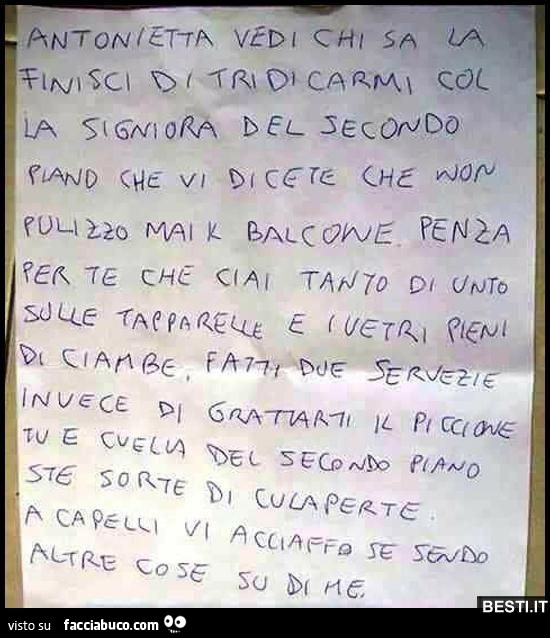 ANTONIETTA VEDI CHI SA LA
FINISCI DI TRIDICARMI COL
LA SIGNIORA DEL SECONDO
PIANO CHE VI DICETE CHE NON
PULIZZO MAI K BALCONE. PENZA
PER TE CHE CIAI TANTO DI UNTO
SULLE TAPPARELLE E I VETRI PIENI
DI CIAMBE, FATTI DUE SERVEZIE
INVECE DI GRATTARTI IL PICCIONE
TU E CUELLA DEL SECONDO PIANO
STE SORTE DI CULAPERTE.
A CAPELLI VI ACCIAFFO SE SENDO
ALTRE COSE SU DI ME.
BESTI.IT
visto su facciabuco.com